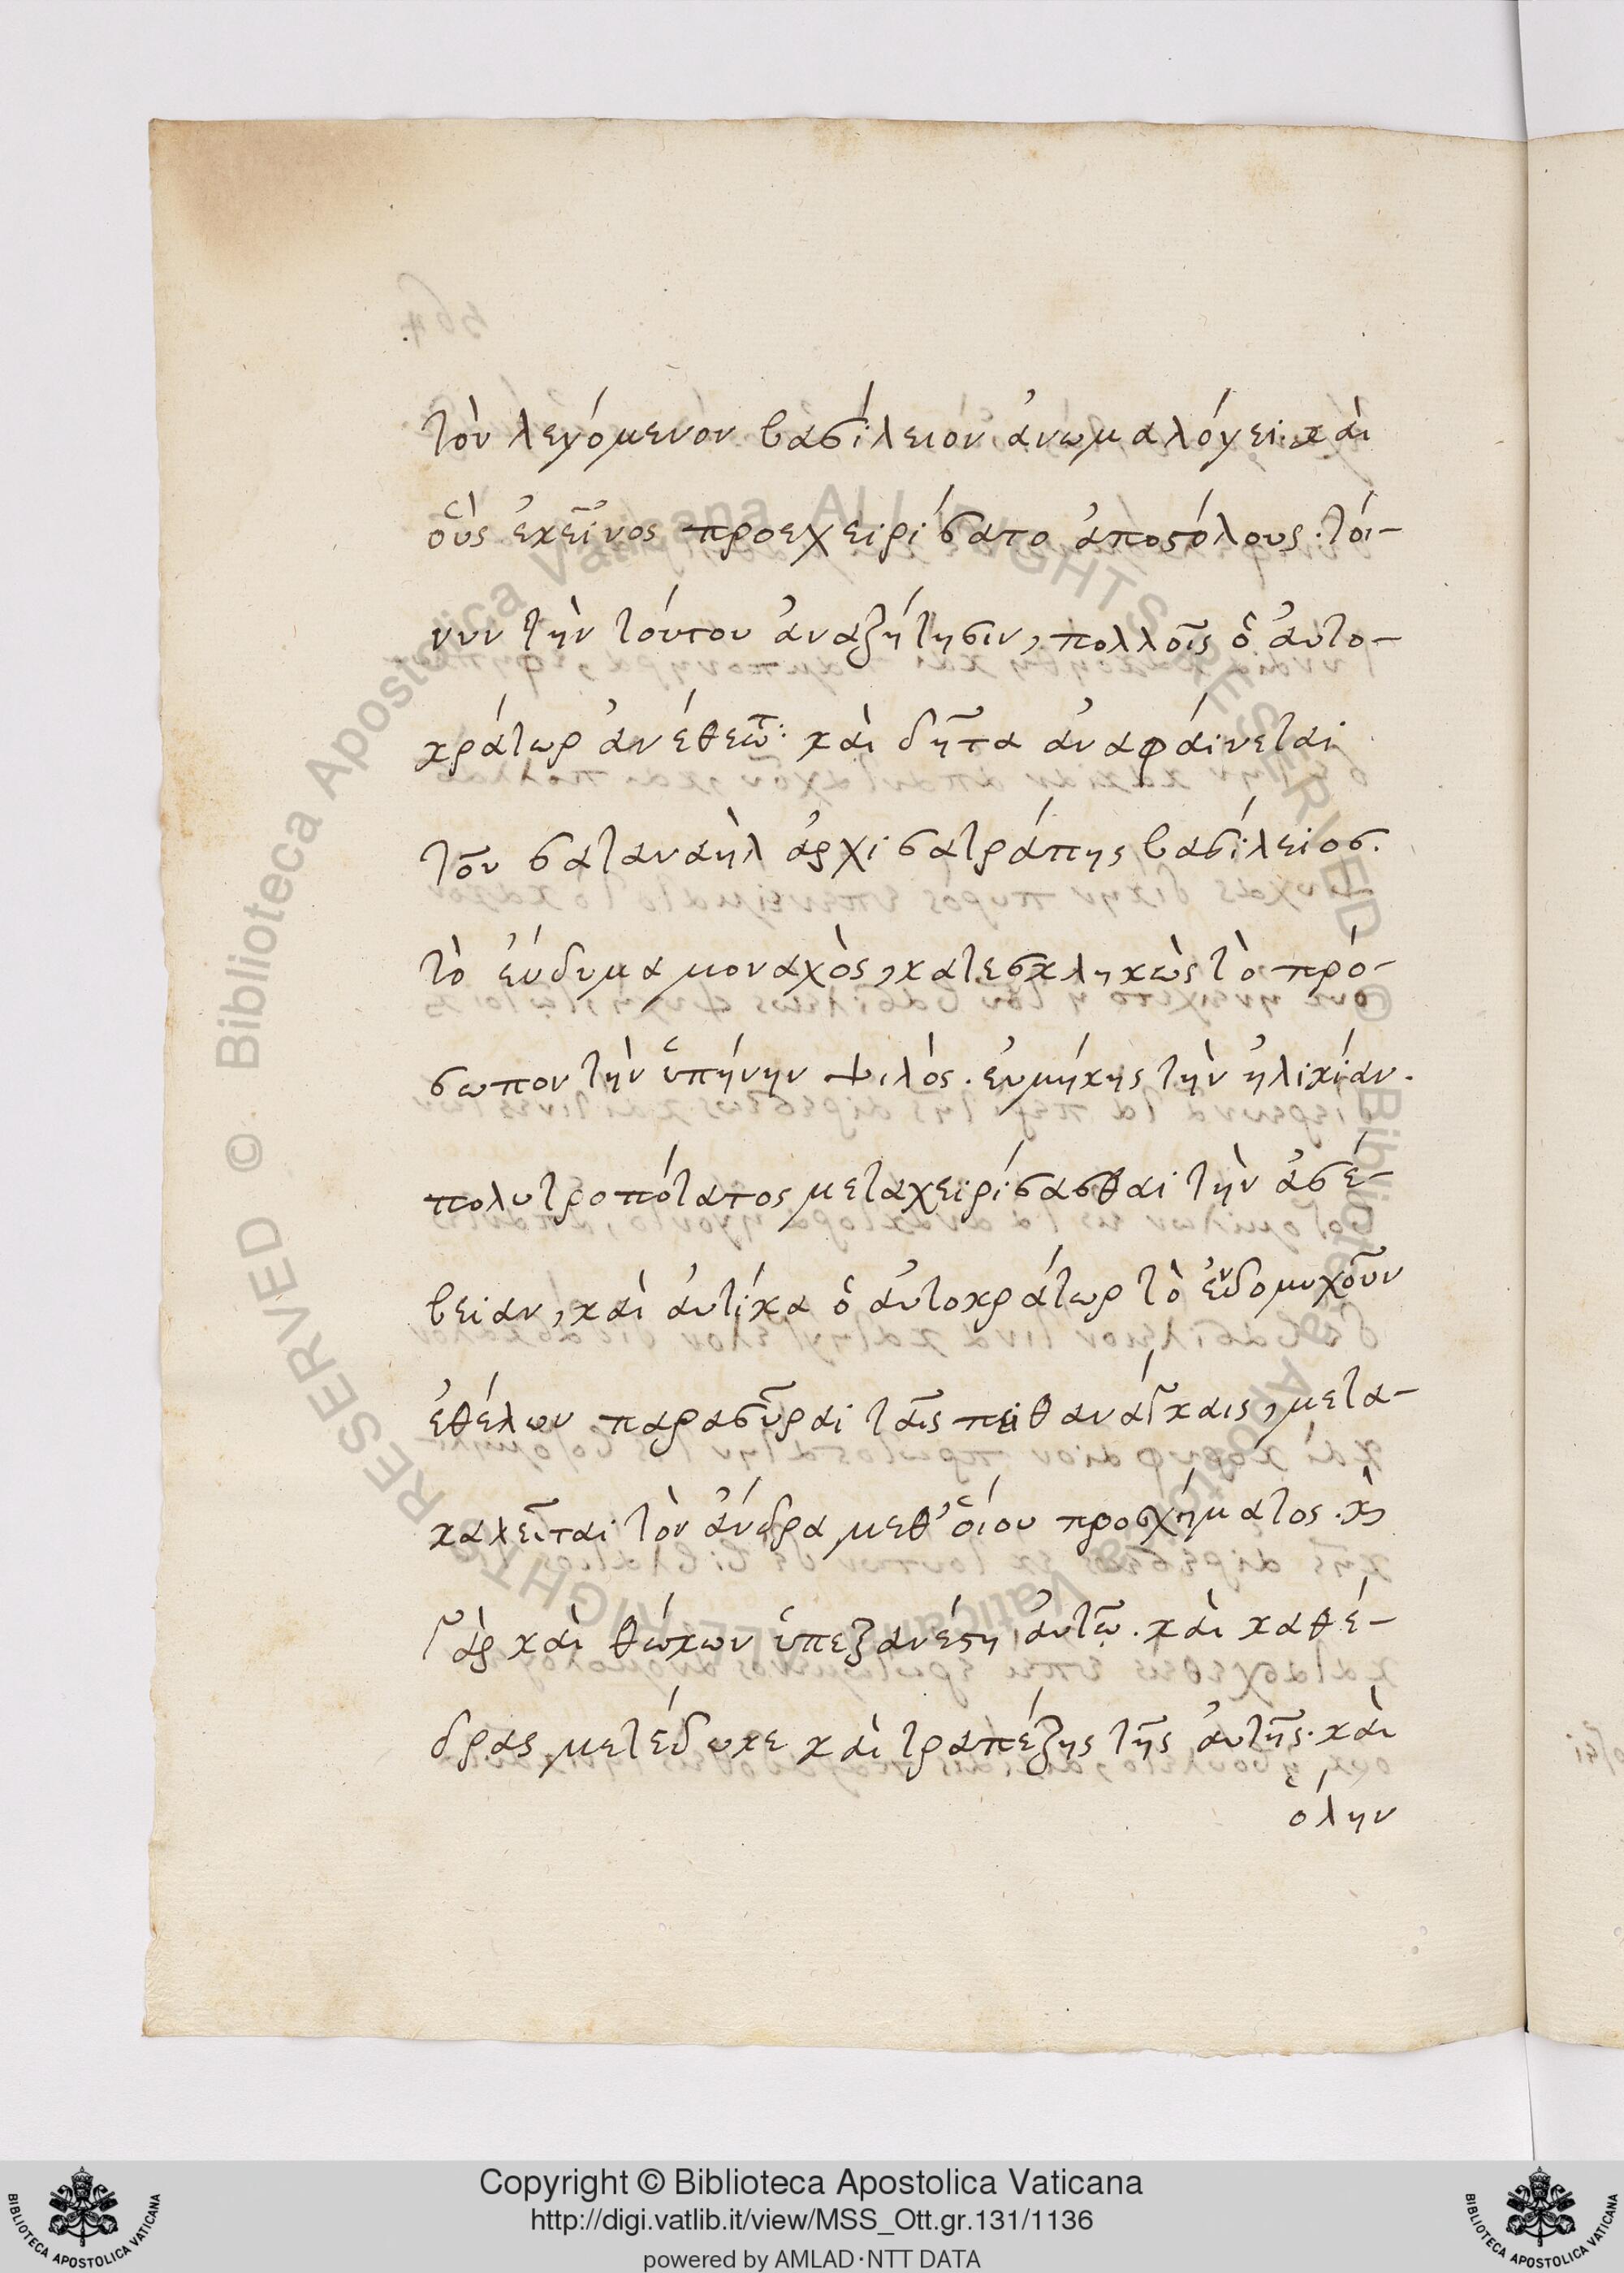 τὸν λεγόμενον βασίλειον ἀνωμαλόγει. καὶ
οὓς ἐκεῖνος προεχειρίσατο ἀποστόλους. τοί-
νυν τὴν τούτου ἀναζήτησιν, πολλοῖς ὁ αὐτο-
κράτωρ ἀνέθετο· καὶ δῆτα ἀναφαίνεται
τοῦ σαταναὴλ ἀρχισατράπης βασίλειος.
τὸ ἔνδυμα μοναχὸς, κατεσκληκὼς τὸ πρό-
σωπον τὴν ὑπήνην ψιλός. εὐμήκης τὴν ἡλικίαν.
πολυτροπότατος μεταχειρίσασθαι τὴν ἀσέ-
βειαν, καὶ αὐτίκα ὁ αὐτοκράτωρ τὸ ἐνδομυχοῦν
ἐθέλων παρασῦραι ταῖς πειθανάγκαις, μετα-
καλεῖται τὸν ἄνδρα μεθ' οἵου προσχήματος. κὶ
γὰρ καὶ θώκων ὑπεξανέστη αὐτῷ. καὶ καθέ-
δρας μετέδωκε καὶ τραπέζης τῆς αὐτῆς. καὶ
ὅλην
Copyright © Biblioteca Apostolica Vaticana
http://digi.vatlib.it/view/MSS_Ott.gr.131/1136
powered by AMLAD·NTT DATA
BIBLIOTECA APOSTOLICA VATICANA
BIBLIOTECA APOSTOLICA VATICANA
© Biblioteca Apostolica Vaticana ALL RIGHTS RESERVED
© Biblioteca Apostolica Vaticana ALL RIGHTS RESERVED